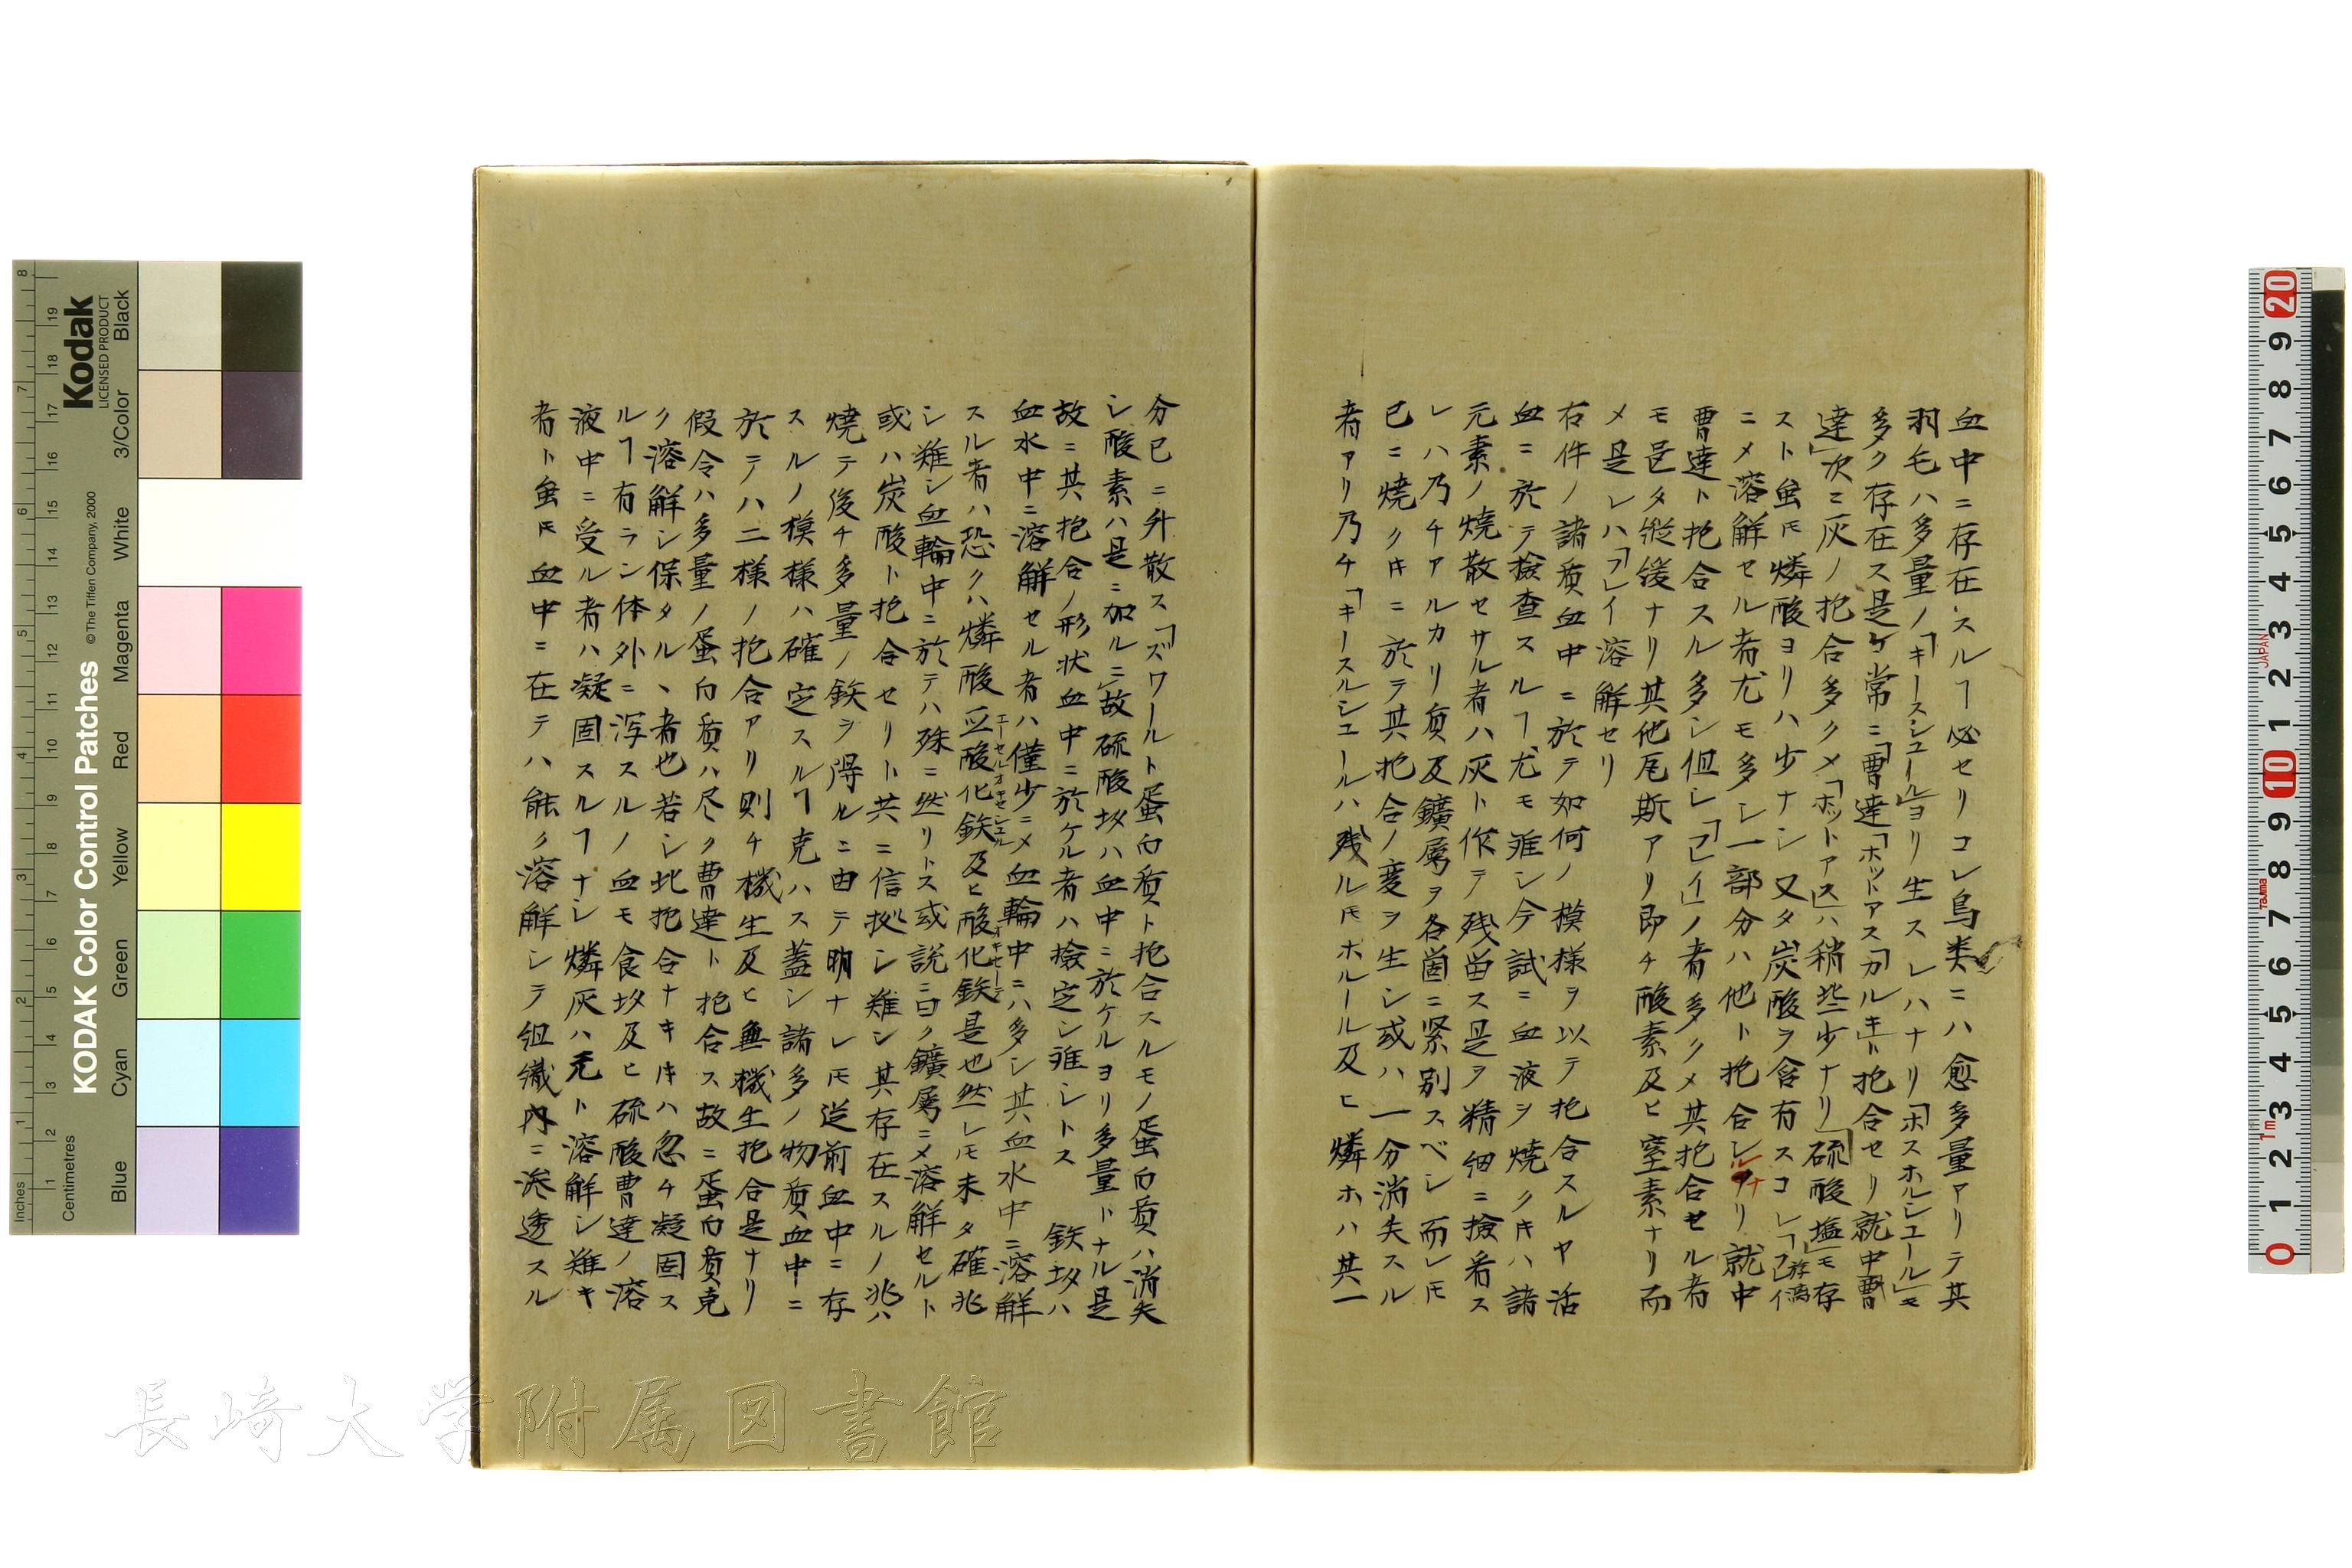 血中ニ存在スルヿ必セリコレ鳥类ニハ愈多量アリテ其
羽毛ハ多量ノ「キースシユール」ヨリ生スレハナリ「ホスホルシユール」モ
多ク存在ス是レ常ニ「曹達「ホットアス「カルキ」ト抱合セリ就中曹
達」次ニ灰ノ抱合多クメ「ホットアス」ハ稍些少ナリ「硫酸塩」モ存
スト虽𪜈燐酸ヨリハ少ナシ又タ炭酸ヲ含有スコレ「フレイ
ニメ溶解セル者尤モ多シ一部分ハ他ト抱合シタリ就中
曹達ト抱合スル多シ但シ「フレイ」ノ者多クメ其抱合セル者
モ邑タ縱緩ナリ其他尾斯アリ即チ酸素及ヒ窒素ナリ而
メ是レハ「フレイ溶解セリ
右件ノ諸質血中ニ於テ如何ノ模様ヲ以テ抱合スルヤ活
血ニ於テ撿査スルヿ尤モ難シ今試ニ血液ヲ焼クキハ諸
元素ノ焼散セサル者ハ灰ト作テ残畄ス是ヲ精細ニ撿看ス
レハ乃チアルカリ質及鑛属ヲ各箇ニ紧別スベシ而レ𪜈
已ニ焼クキニ於テ其抱合ノ変ヲ生シ或ハ一分消失スル
者アリ乃チ「キースルシユールハ残ル𪜈ホルール及ヒ燐ホハ其一
分已ニ外散ス「ズワールト蛋白質ト抱合スルモノ蛋白質ハ消失
シ酸素ハ是ニ加ルニ」故硫酸㘽ハ血中ニ於ケルヨリ多量トナル是
故ニ其抱合ノ形状血中ニ於ケル者ハ撿定シ難シトス 鉄㘽ハ
血水中ニ溶解セル者ハ僅少ニメ血輪中ニハ多シ其血水中ニ溶解
スル者ハ恐クハ燐酸亞酸化鉄及ヒ酸化鉄是也然レ𪜈未タ確兆
シ難シ血輪中ニ於テハ殊ニ然リトス或説ニ曰ク鑛属ニメ溶解セルト
或ハ炭酸ト抱合セリト共ニ信拠シ難シ其存在スルノ兆ハ
焼テ後チ多量ノ鉄ヲ得ルニ由テ明ナレ𪜈従前血中ニ存
スルノ模様ハ確定スルヿ克ハス蓋シ諸多ノ物質血中ニ
於テハ二様ノ抱合アリ則チ機生及ヒ無機生抱合是ナリ
假令ハ多量ノ蛋白質ハ尽ク曹達ト抱合ス故ニ蛋白質克
ク溶解シ保タルヽ者也若シ此抱合ナキ片ハ忽チ凝固ス
ルヿ有ラン体外ニ泻スルノ血モ食㘽及ヒ硫酸曹達ノ溶
液中ニ受ル者ハ凝固スルヿナシ燐灰ハ元ト溶解シ難キ
者ト虽𪜈血中ニ在テハ能ク溶解シテ组織内ニ滲透スル
長崎大学附属図書館
KODAK Color Control Patches
© The Tiffen Company, 2000
Kodak
LICENSED PRODUCT
Inches
Centimetres
Blue
Cyan
Green
Yellow
Red
Magenta
White
3/Color
Black
JAPAN
Tajima